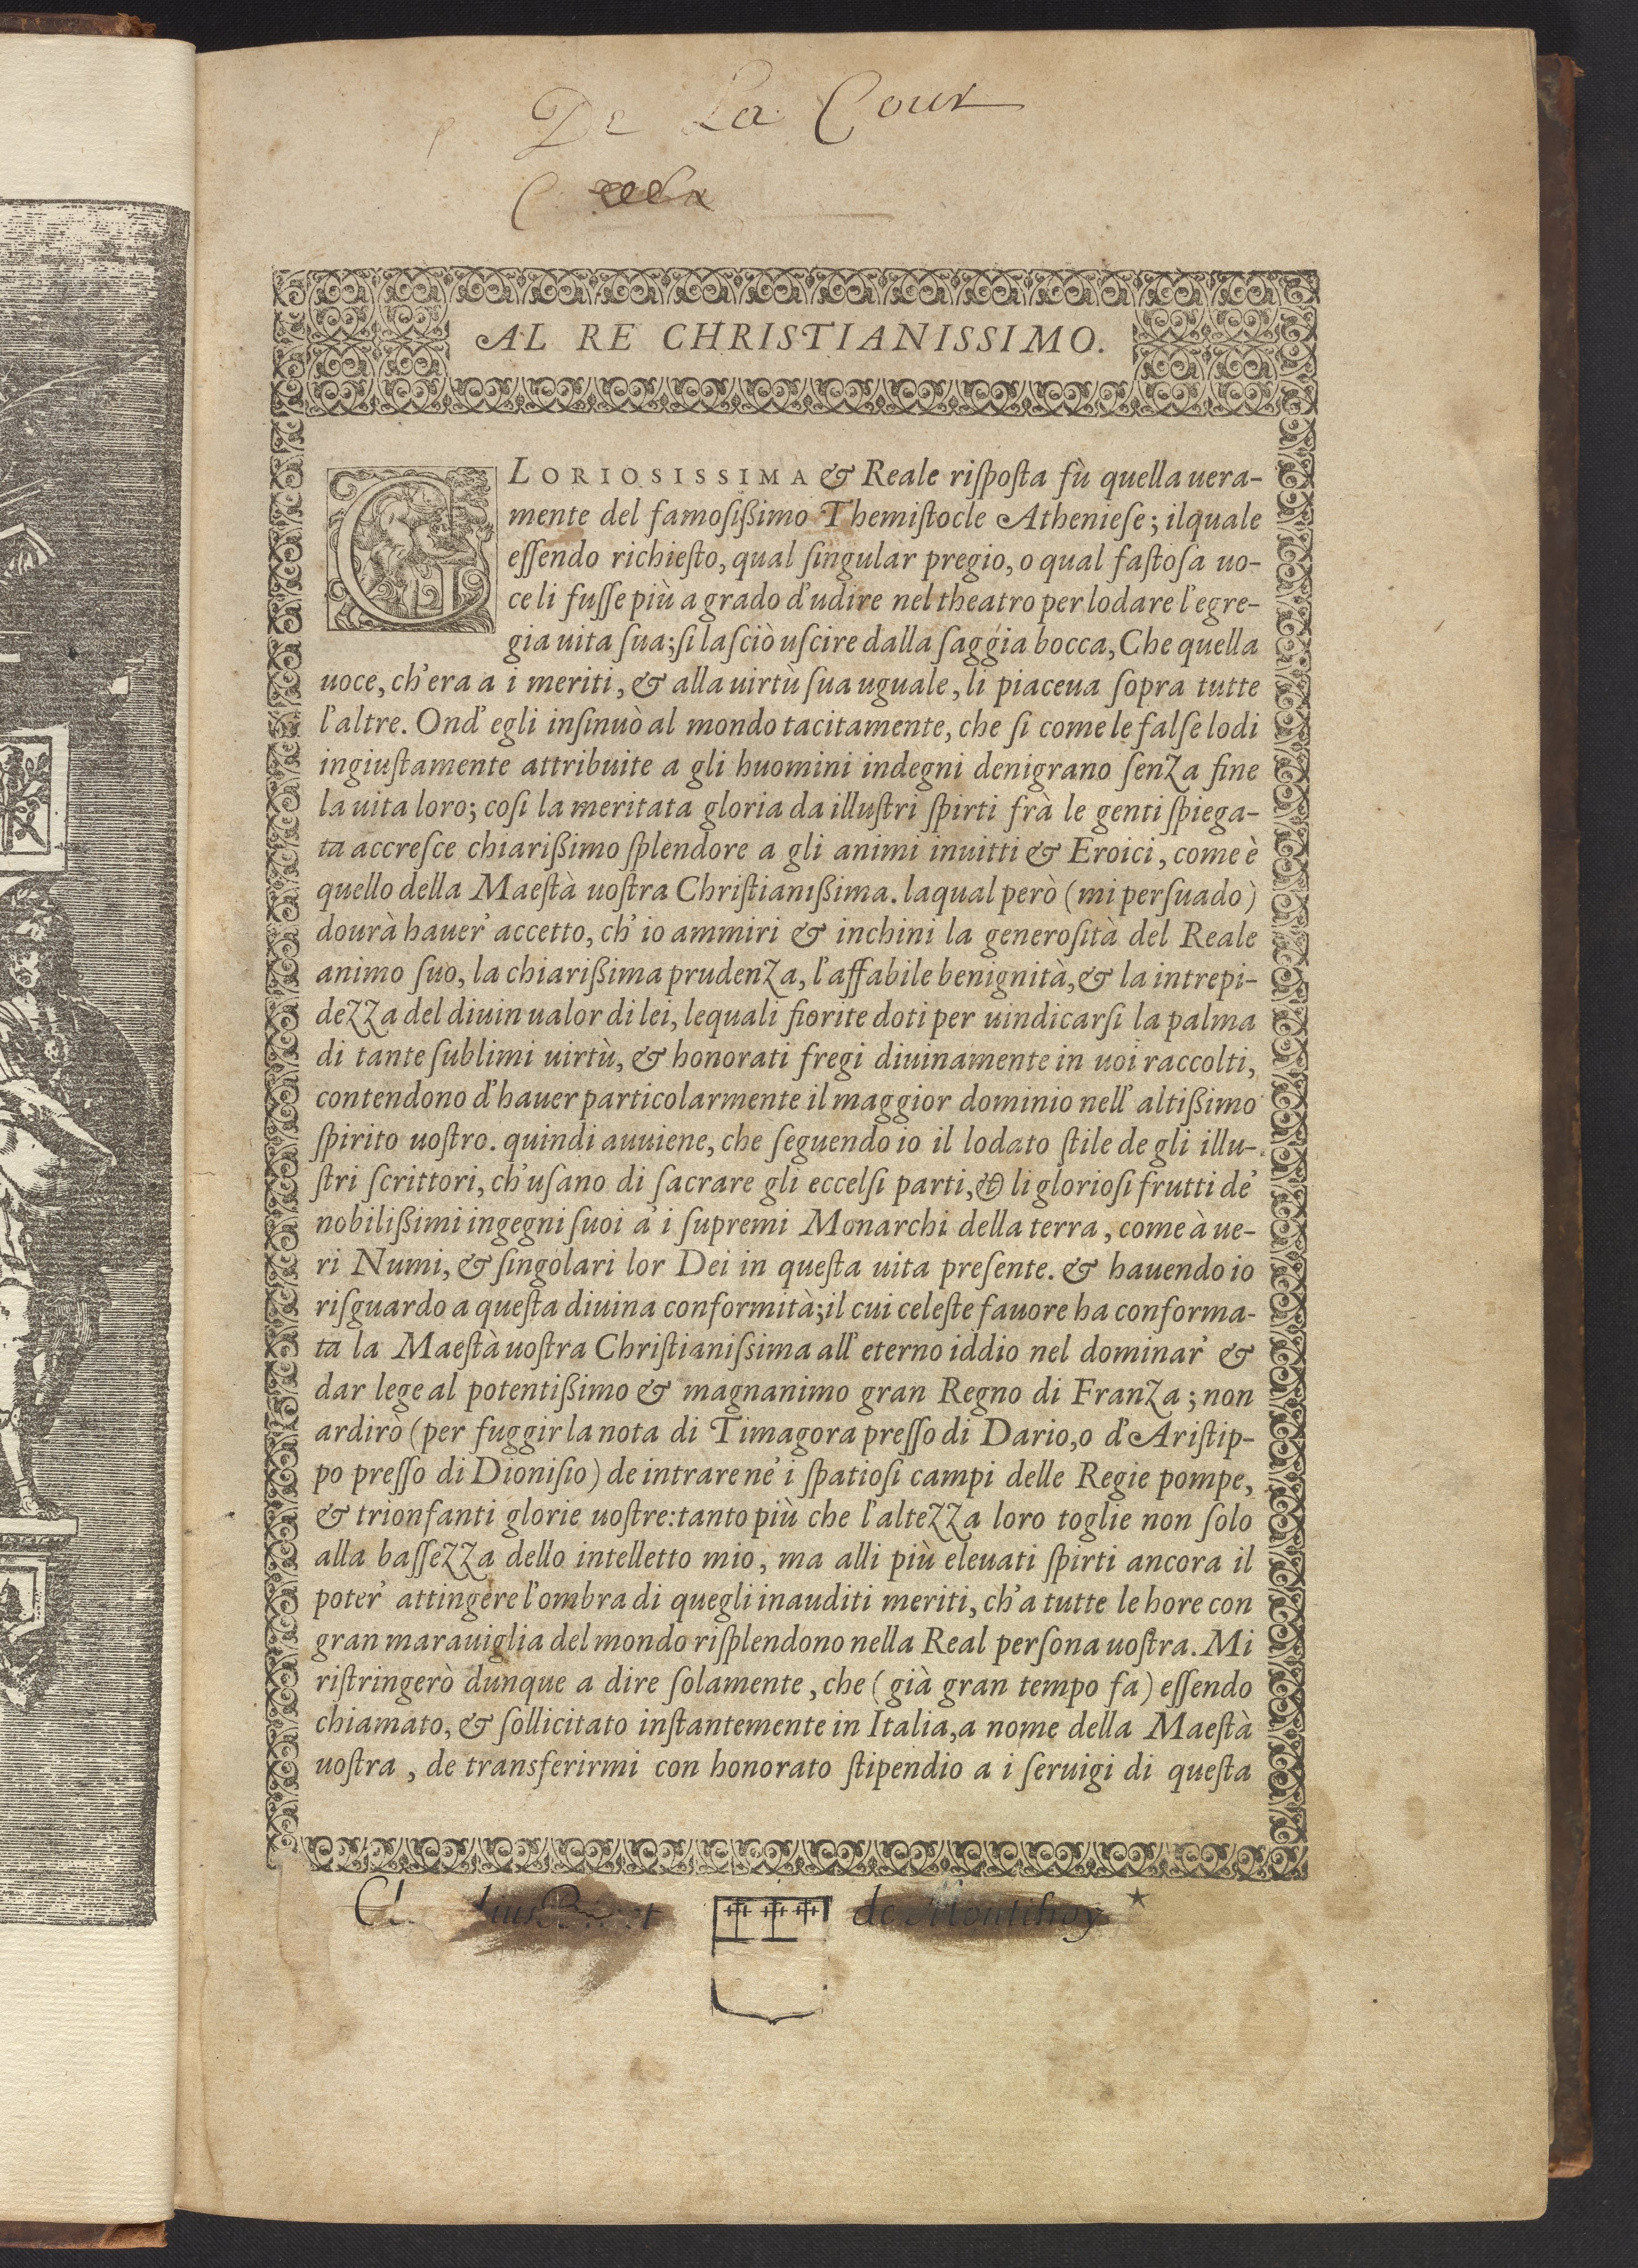 De La Cour
AL RE CHRISTIANISSIMO.
GLORIOSISSIMA & Reale risposta fù quella uera-
mente del famosißimo Themistocle Atheniese; ilquale
essendo richiesto, qual singular pregio, o qual fastosa uo-
ce li fusse più a grado d'udire nel theatro per lodare l'egre-
gia uita sua; si lasciò uscire dalla saggia bocca, Che quella
uoce, ch'era a i meriti, & alla uirtù sua uguale, li piaceua sopra tutte
l'altre. Ond' egli insinuò al mondo tacitamente, che si come le false lodi
ingiustamente attribuite a gli huomini indegni denigrano senza fine
la uita loro; cosi la meritata gloria da illustri spirti frà le genti spiega-
ta accresce chiarißimo splendore a gli animi inuitti & Eroici, come è
quello della Maestà uostra Christianißima. laqual però (mi persuado)
dourà hauer' accetto, ch' io ammiri & inchini la generosità del Reale
animo suo, la chiarißima prudenza, l'affabile benignità, & la intrepi-
dezza del diuin ualor di lei, lequali fiorite doti per uindicarsi la palma
di tante sublimi uirtù, & honorati fregi diuinamente in uoi raccolti,
contendono d'hauer particolarmente il maggior dominio nell' altißimo
spirito uostro. quindi auuiene, che seguendo io il lodato stile de gli illu-
stri scrittori, ch'usano di sacrare gli eccelsi parti, & li gloriosi frutti de'
nobilißimi ingegni suoi a' i supremi Monarchi della terra, come à ue-
ri Numi, & singolari lor Dei in questa uita presente. & hauendo io
risguardo a questa diuina conformità; il cui celeste fauore ha conforma-
ta la Maestà uostra Christianissima all' eterno iddio nel dominar' &
dar lege al potentißimo & magnanimo gran Regno di Franza; non
ardirò (per fuggir la nota di Timagora presso di Dario, o d'Aristip-
po presso di Dionisio) de intrare ne' i spatiosi campi delle Regie pompe,
& trionfanti glorie uostre: tanto più che l'altezza loro toglie non solo
alla bassezza dello intelletto mio, ma alli più eleuati spirti ancora il
poter' attingere l'ombra di quegli inauditi meriti, ch'a tutte le hore con
gran marauiglia del mondo risplendono nella Real persona uostra. Mi
ristringerò dunque a dire solamente, che (già gran tempo fa) essendo
chiamato, & sollicitato instantemente in Italia, a nome della Maestà
uostra, de transferirmi con honorato stipendio a i seruigi di questa